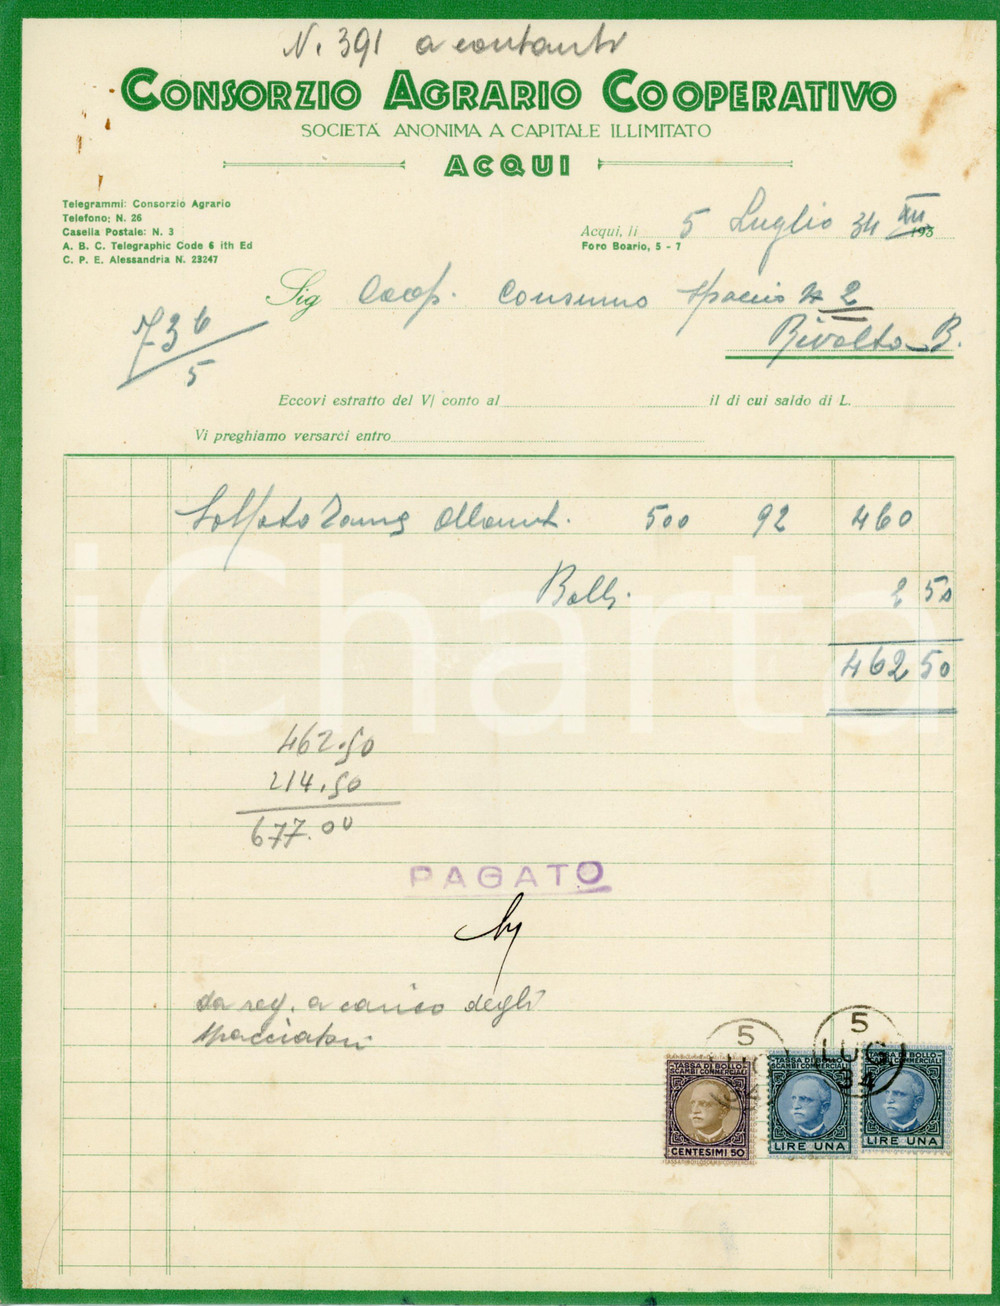 N. 391 a contanti
CONSORZIO AGRARIO COOPERATIVO
SOCIETÀ ANONIMA A CAPITALE ILLIMITATO
ACQUI
Telegrammi: Consorzio Agrario
Telefono: N. 26
Casella Postale: N. 3
A. B. C. Telegraphic Code 6 ith Ed
C. P. E. Alessandria N. 23247
Acqui, li 5 Luglio 34 XII 193
Foro Boario, 5 - 7
Sig Coop. Consumo spaccio N 2
Rivalta B.
736
5
Eccovi estratto del V/ conto al il di cui saldo di L.
Vi preghiamo versarci entro
Solfato 500 92 460
Bolli. 2 50
462 50
462.50
214.50
677.00
PAGATO
da reg. a carico degli
spacciatori
5 LUG 34
5 LUG 34
TASSA DI BOLLO SCAMBI COMMERCIALI
CENTESIMI 50
TASSA DI BOLLO SCAMBI COMMERCIALI
LIRE UNA
TASSA DI BOLLO SCAMBI COMMERCIALI
LIRE UNA
iCharta